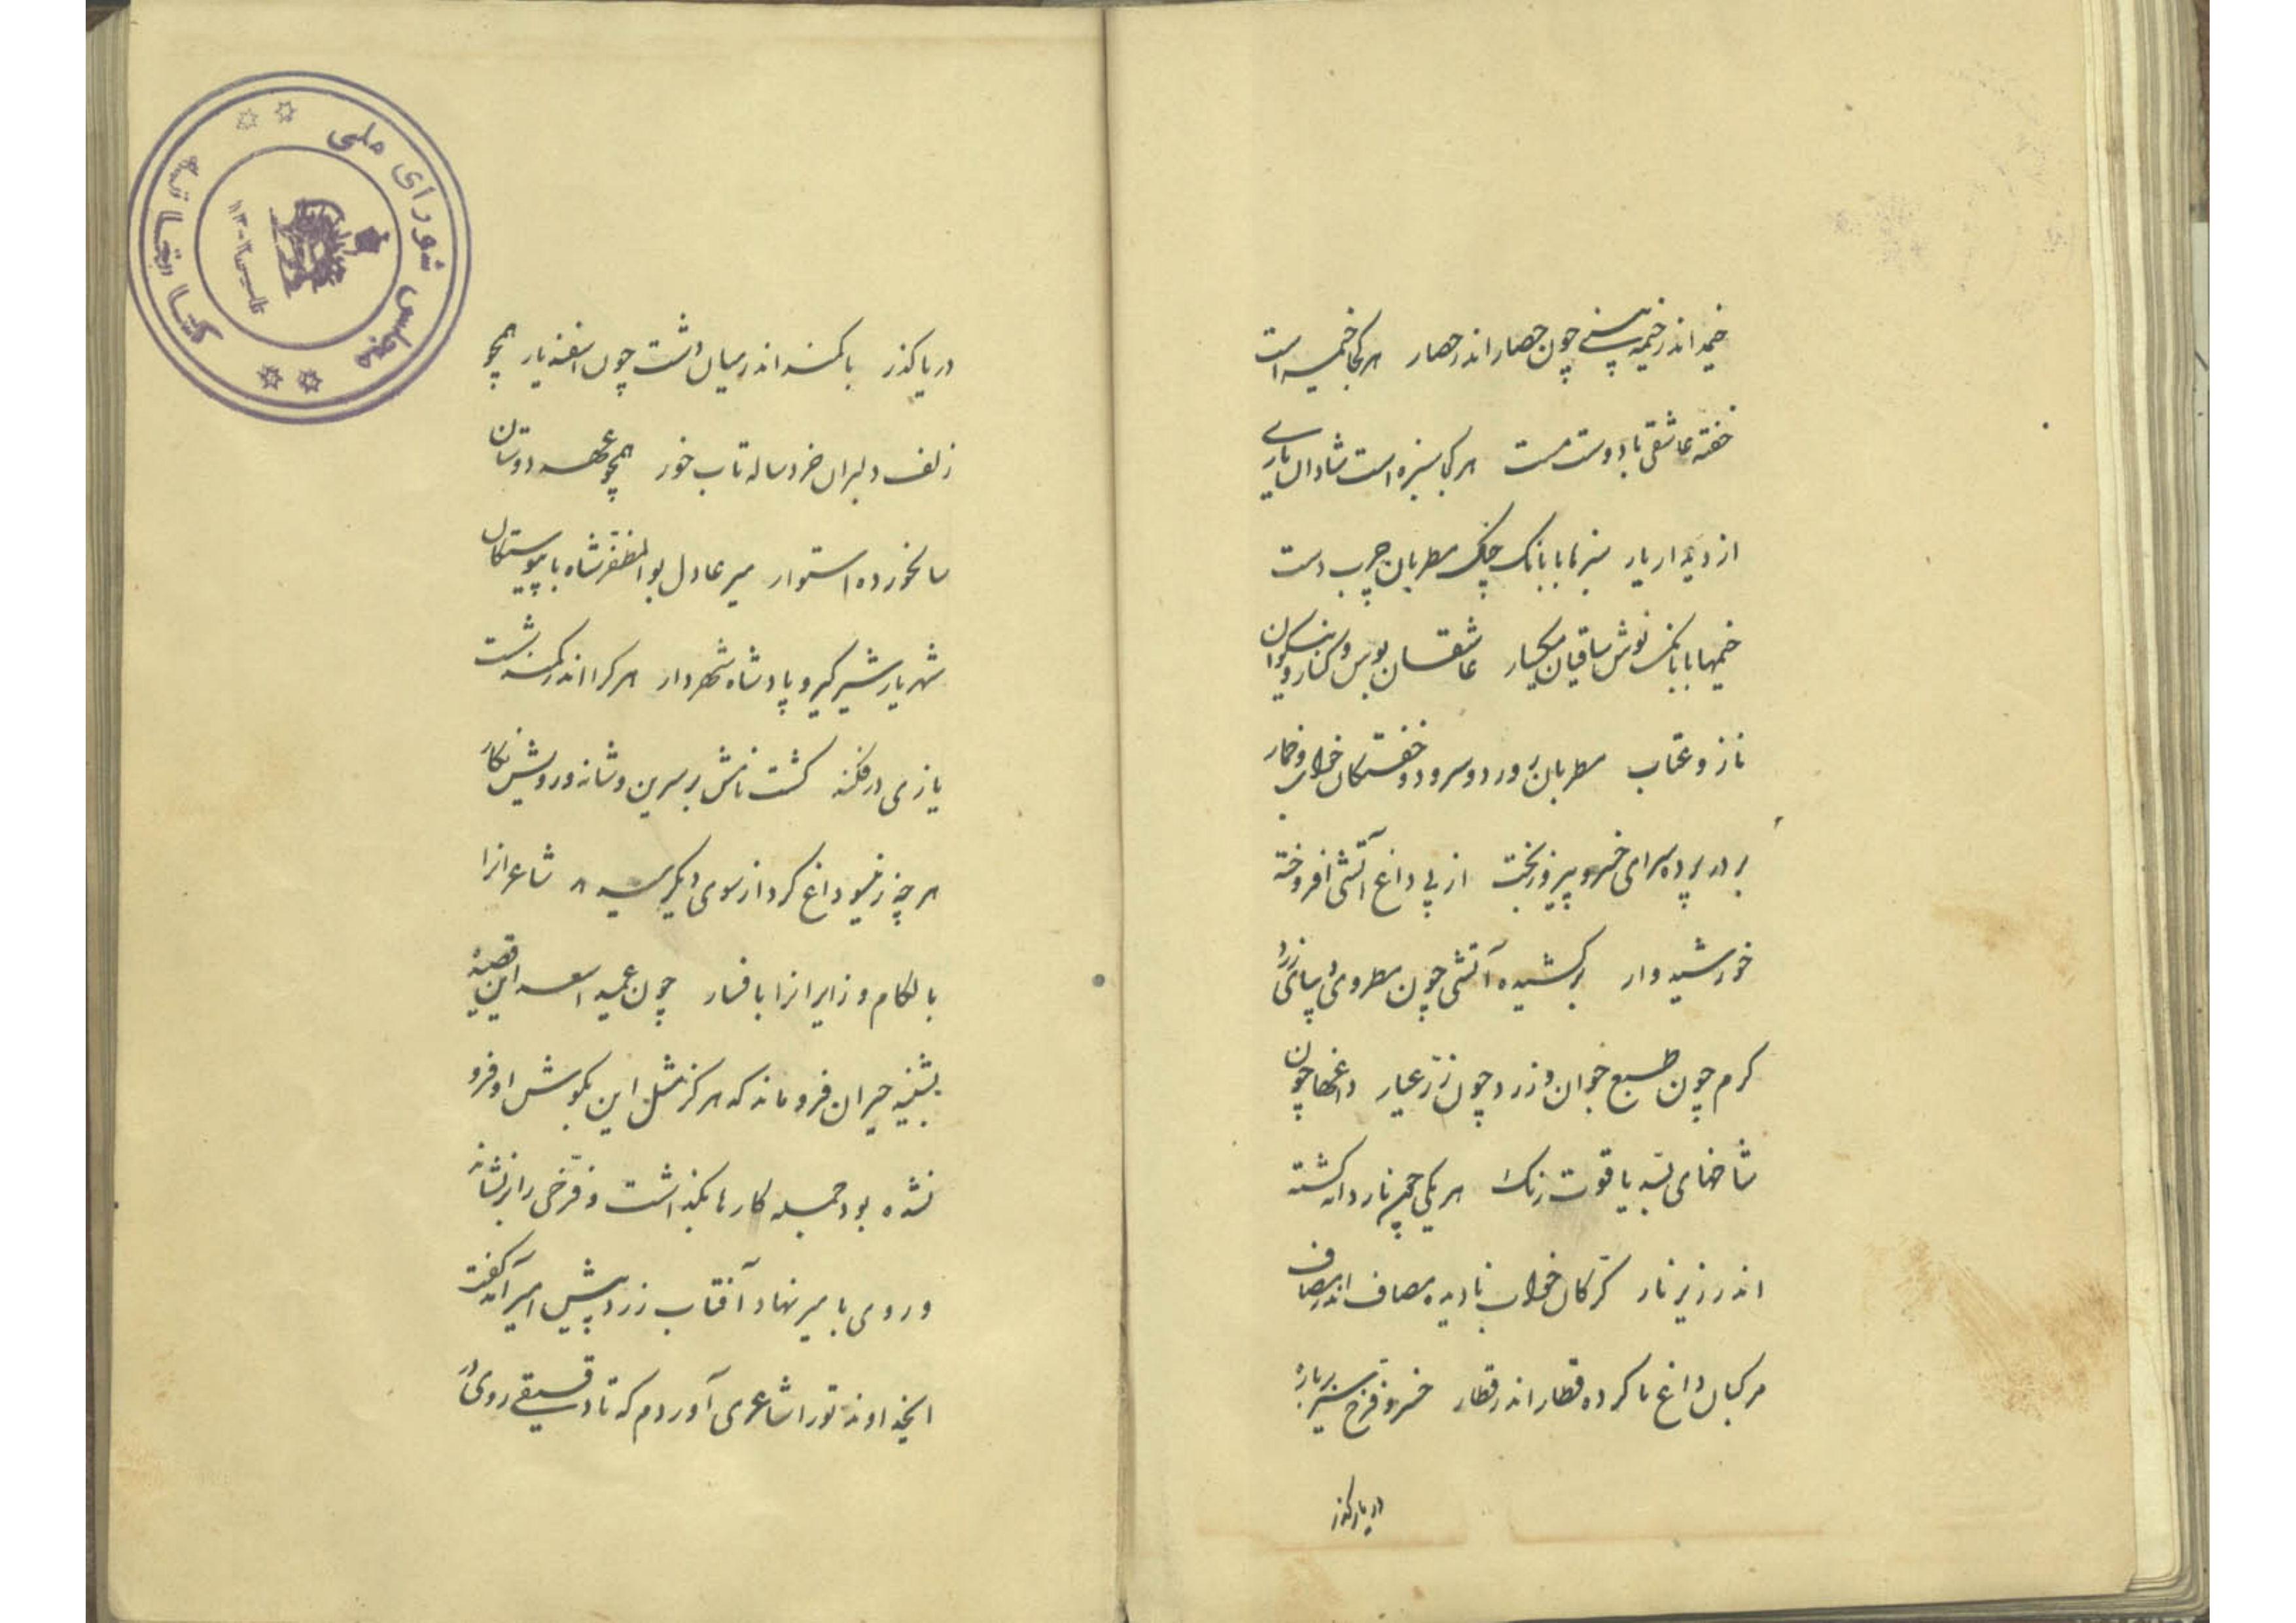 خیمه اندر خیمه بینی چون حصار اندر حصار هر کجا خیمه است
خفته عاشقی با دوست مست هر کجا سبزه است شادان یاری
از دیدار یار سبزها با بانک چنک مطربان چرب دست
خیمها با بانک نوش ساقیان میکسار عاشقان بوس و کنار و نیکوان
ناز و عتاب مطربان رود و سرود و خفتکان خواب و خمار
بر در پرده سرای خسرو پیروز بخت از پی داغ آتشی افروخته
خورشیدوار برکشیده آتشی چون مطرد دیبای زرد
کرم چون طبع جوان و زرد چون زر عیار داغها چون
شاخهای بسد یاقوت رنک هر یکی چون نار دانه کشته
اندر زیر نار کرکان خواب نادیده مصاف اندر مصاف
مرکبان داغ ناکرده قطار اندر قطار خسرو فرخ سیر بر باره
دریا کذر
دریا کذر با کمند اندر میان دشت چون اسفندیار همچو
زلف دلبران خردساله تاب خور همچو عهد دوستان
سالخورده استوار میر عادل بوالمظفر شاه با پیوستکان
شهریار شیرکیر و پادشاه شهردار هر کرا اندر کمند شست
یازی درفکند کشت نامش بر سرین و شانه و رویش نکار
هر چه زین سو داغ کرد از سوی دیکر هدیه شاعرانرا
با لکام و زایرانرا با فسار چون عمید اسعد این قصیده
بشنید حیران فروماند که هرکز مثل این بکوش او فرو
نشده بود جمله کارها بکذاشت و فرخی را برنشاند
و روی بامیر نهاد آفتاب زرد پیش امیر آمد کفت
ایخداوند تورا شاعری آوردم که تا دقیقی روی در
کتابخانه مجلس شورای ملی